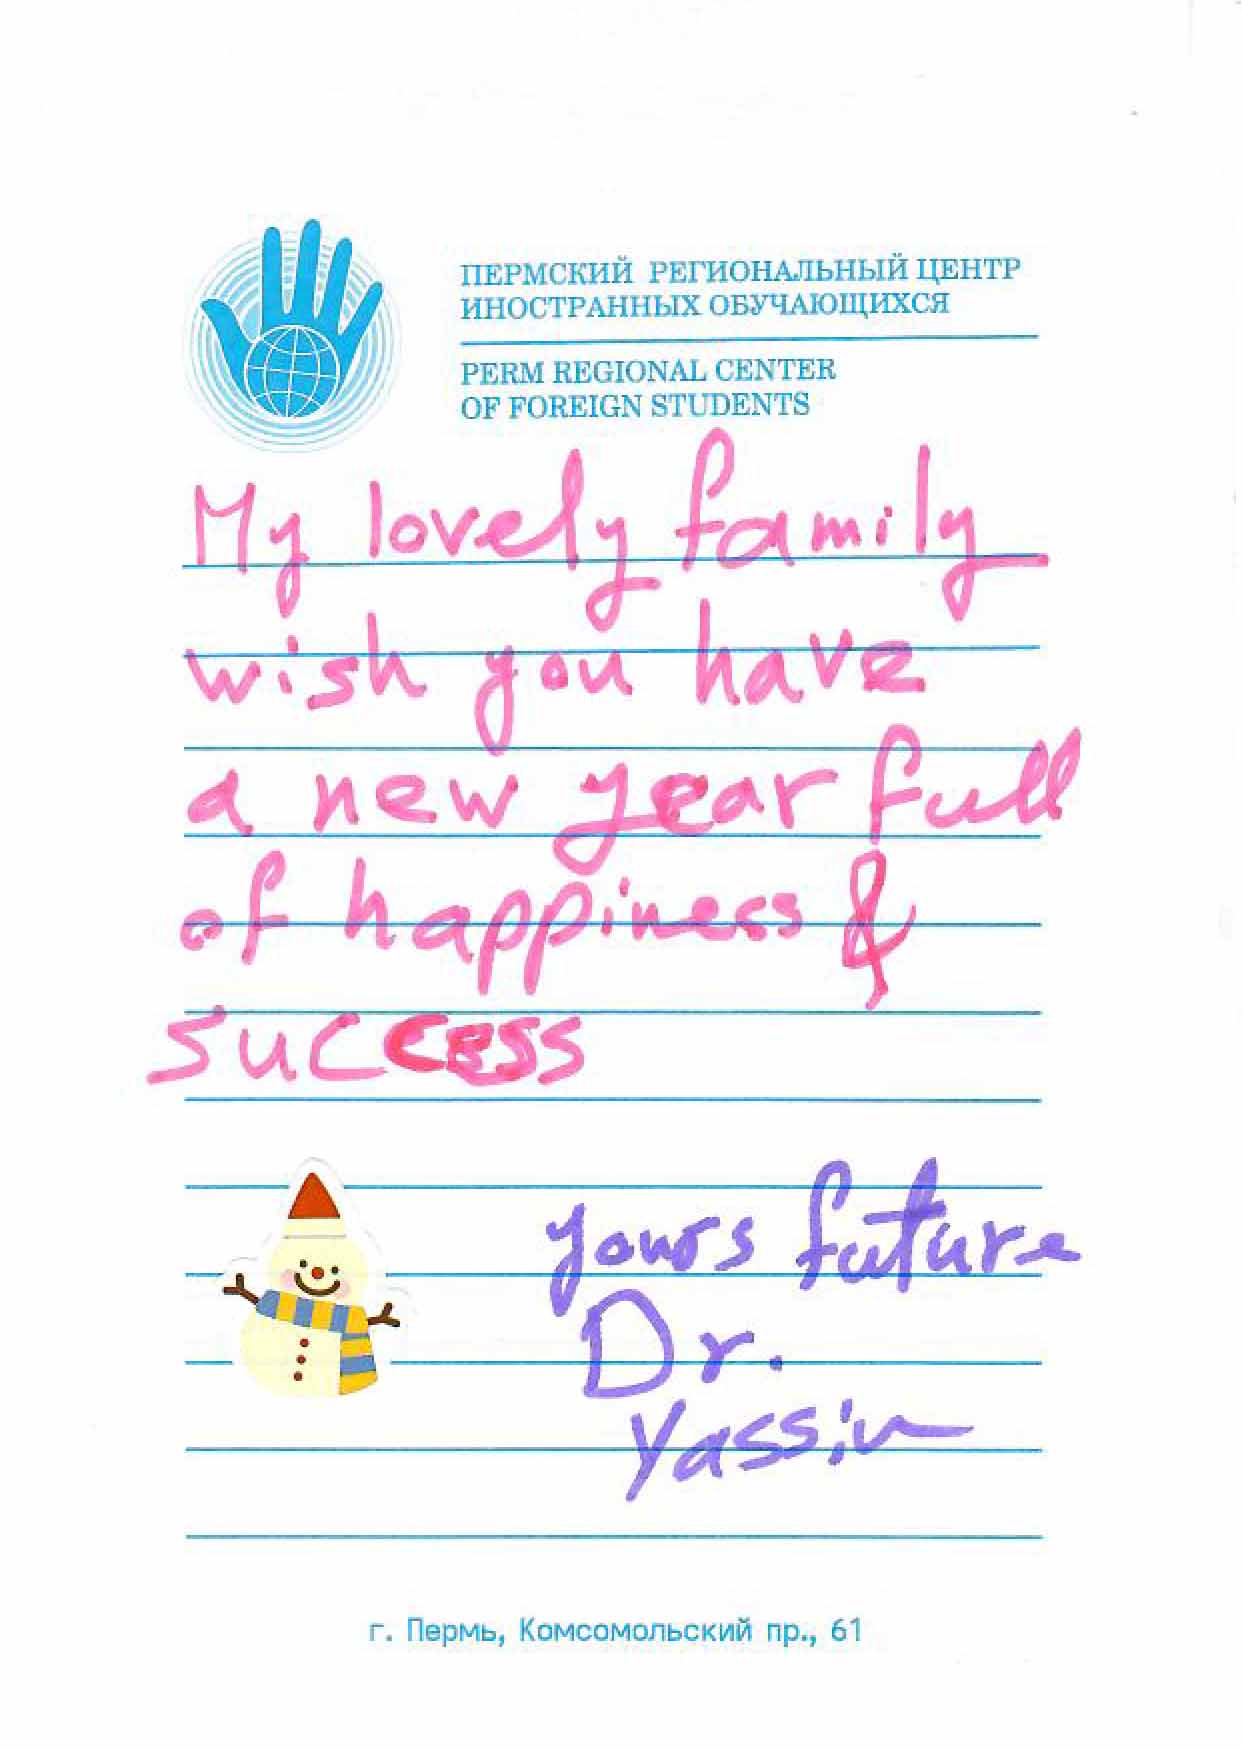 ПЕРМСКИЙ РЕГИОНАЛЬНЫЙ ЦЕНТР
ИНОСТРАННЫХ ОБУЧАЮЩИХСЯ
PERM REGIONAL CENTER
OF FOREIGN STUDENTS
My lovely family
wish you have
a new year full
of happiness &
success
yours future
Dr.
Yassin
г. Пермь, Комсомольский пр., 61